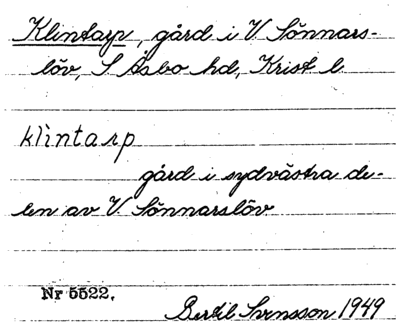 Klintarp, gård i V Sönnars-
löv, S Åsbo hd, Krist l.
klintarp
gård i sydvästra de-
len av V. Sönnarslöv
Nr 5522.
Bertil Svensson 1949